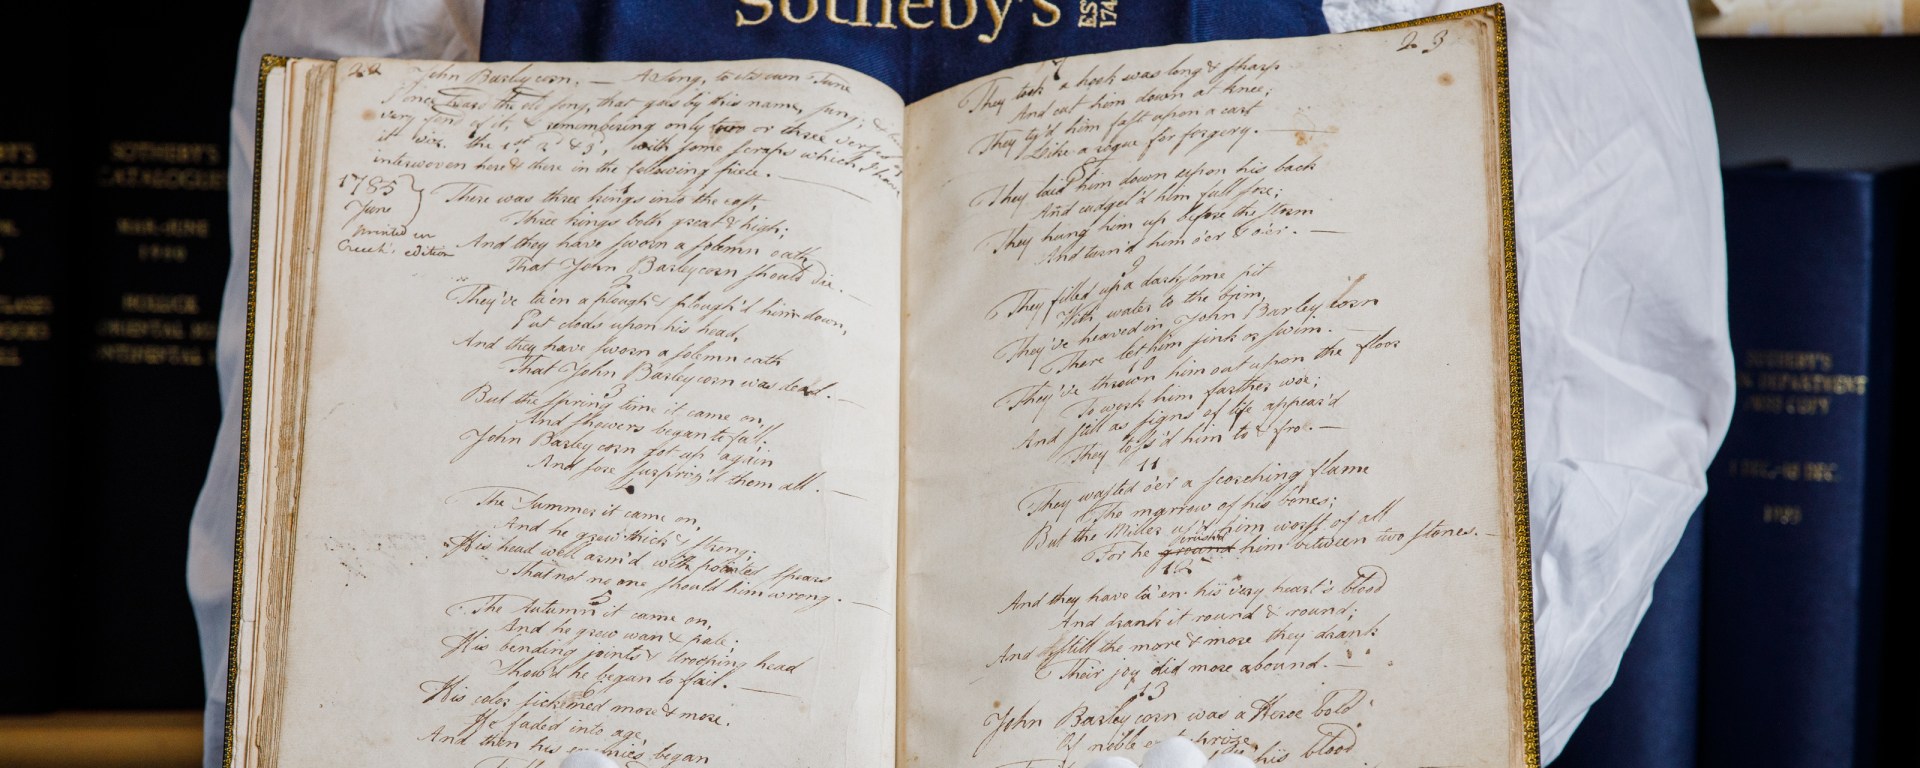 Sotheby's
EST
174
SOTHEBY'S
CATALOGUE
MAR-JUNE
SOTHEBY'S
DEPARTMENT
22
John Barleycorn. — A song, to its own Tune
I once heard the old song, that goes by this name, sung; &
very fond of it, & remembering only two or three verses of
it viz. the 1st 2d & 3d, with some scraps which I have
interwoven here & there in the following piece. —
1785
June
printed in
Creech's edition
There was three kings into the east,
Three kings both great & high;
And they have sworn a solemn oath
That John Barleycorn should die. —
2
They've ta'en a plough & plough'd him down,
Put clods upon his head,
And they have sworn a solemn oath
That John Barleycorn was dead. —
3
But the spring time it came on,
And showers began to fall;
John Barleycorn got up again
And sore surpris'd them all. —
The Summer it came on,
And he grew thick & strong;
His head well arm'd with pointed spears
That not no one should him wrong. —
5
The Autumn it came on,
And he grew wan & pale;
His bending joints & drooping head
Show'd he began to fail. —
6
His color sicken'd more & more.
He faded into age,
And then his enemies began
23
7
They took a hook was long & sharp
And cut him down at knee;
They ty'd him fast upon a cart
Like a rogue for forgery. —
They laid him down upon his back
And cudgel'd him full sore;
They hung him up before the storm
And turn'd him o'er & o'er. —
9
They filled up a darksome pit
With water to the brim,
They've heaved in John Barleycorn
There let him sink or swim. —
10
They've thrown him out upon the floor
To work him farther woe;
And still as signs of life appear'd
They toss'd him to & fro. —
11
They wasted o'er a scorching flame
The marrow of his bones;
But the Miller us'd him worst of all
crush'd
For he ground him between two stones. —
12
And they have ta'en his very heart's blood
And drank it round & round;
And still the more & more they drank
Their joy did more abound. —
13
John Barleycorn was a Heroe bold
Of noble enterprize,
his blood